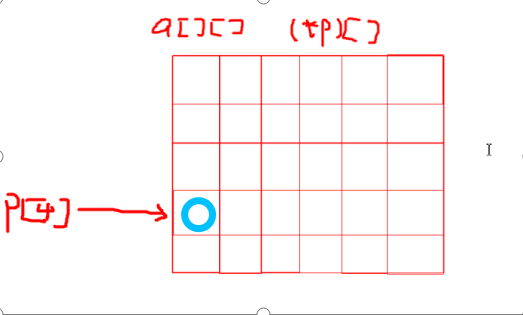 a[][] (*p)[]
p[4]